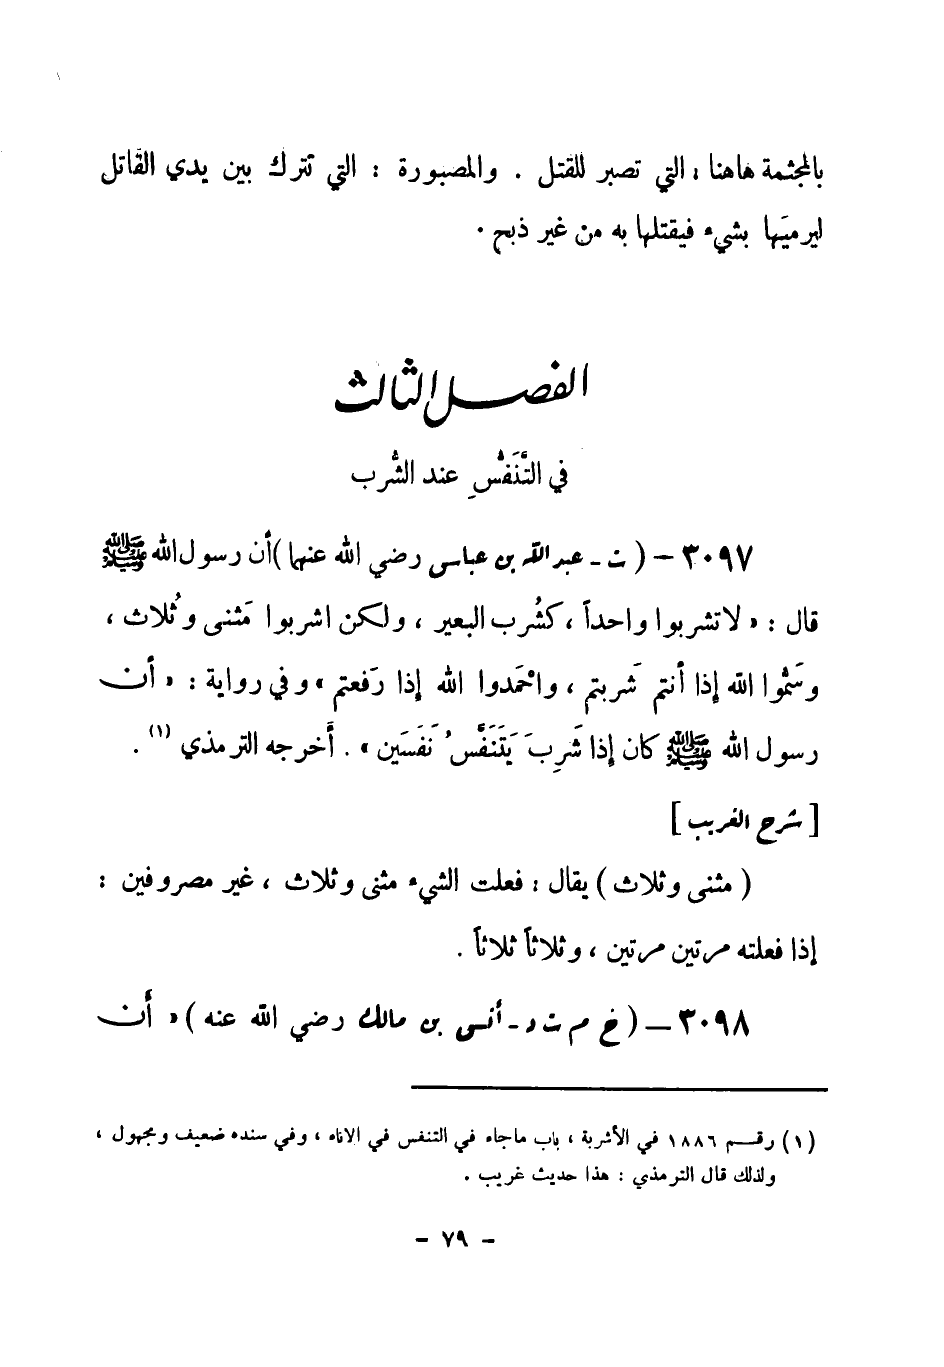 بالمجثمة هاهنا : التي تصبر للقتل . والمصبورة : التي تترك بين يدي القاتل
ليرميَها بشيء فيقتلها به من غير ذبح .
الفصل الثالث
في التَّنَفُّسِ عند الشُّرب
٣٠٩٧ – ( ت ـ عبد الله بن عباس رضي الله عنهما ) أن رسول الله ﷺ
قال : « لا تشربوا واحداً ، كشُرب البعير ، ولكن اشربوا مَثنى وثُلاث ،
وسَمُّوا الله إذا أنتم شَربتم ، واحْمَدوا الله إذا رَفعتم » وفي رواية : « أن
رسول الله ﷺ كان إذا شَرِبَ يَتَنَفَّسُ نَفَسَين » . أَخرجه الترمذي (١) .
[ شرح الغريب ]
( مثنى وثلاث ) يقال : فعلت الشيء مثنى وثلاث ، غير مصروفين :
إذا فعلته مرتين مرتين ، وثلاثاً ثلاثاً .
٣٠٩٨ – ( خ م ت د ـ أنس بن مالك رضي الله عنه ) « أَن
(١) رقم ١٨٨٦ في الأشربة ، باب ماجاء في التنفس في الاناء ، وفي سنده ضعيف ومجهول ،
ولذلك قال الترمذي : هذا حديث غريب .
– ٧٩ –